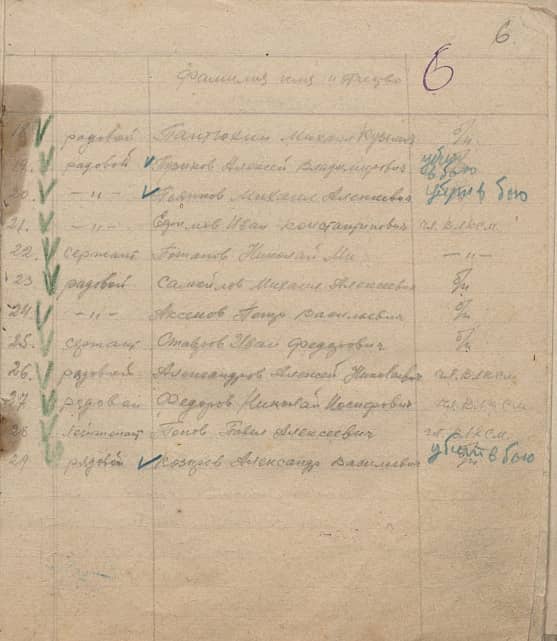 6.
Фамилия имя и Отчество 6
18. рядовой Пантюхин Михаил Кузьмич б/п
19. рядовой Алексей Владимирович убит в бою
20. -"- Михаил Алексеевич убит в бою
21. -"- Ефимов Иван Константинович чл. ВЛКСМ
22. сержант Потапов Николай Ми -"-
23. рядовой Самойлов Михаил Алексеевич б/п
24. -"- Аксенов Петр Васильевич б/п
25. сержант Иван Федорович б/п
26. рядовой Александров Алексей Николаевич чл. ВЛКСМ
27. рядовой Федоров Николай чл. ВЛКСМ
28 лейтенант Попов Павел Алексеевич чл. ВЛКСМ
29. рядовой Козырев Александр Васильевич убит в бою